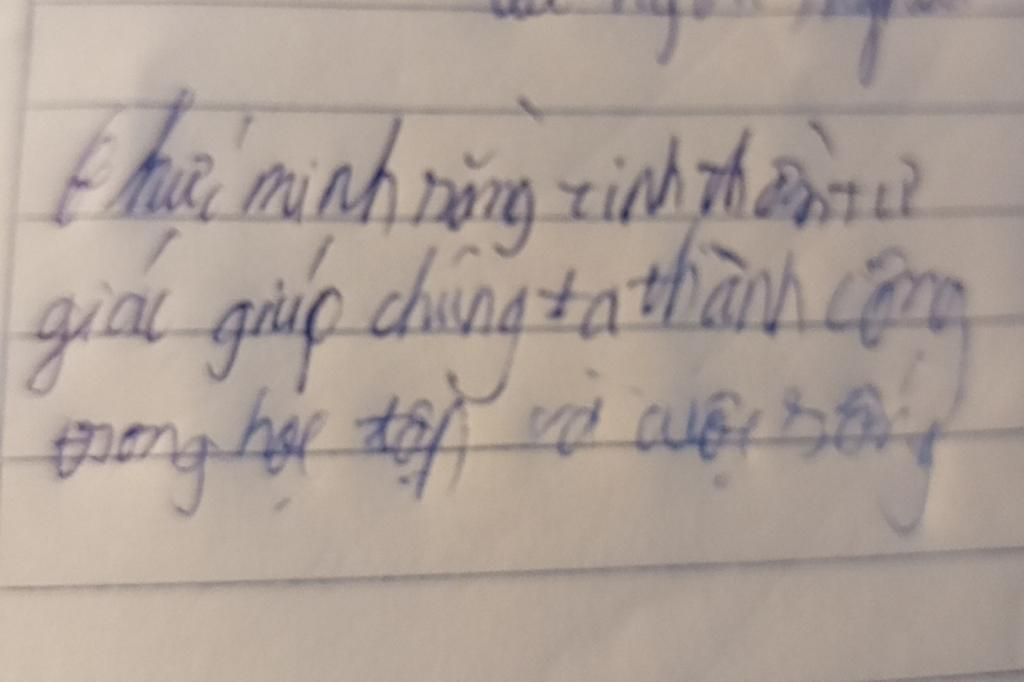 Chức minh rằng tinh thần tự
giác giúp chúng ta thành công
trong học tập và cuộc sống